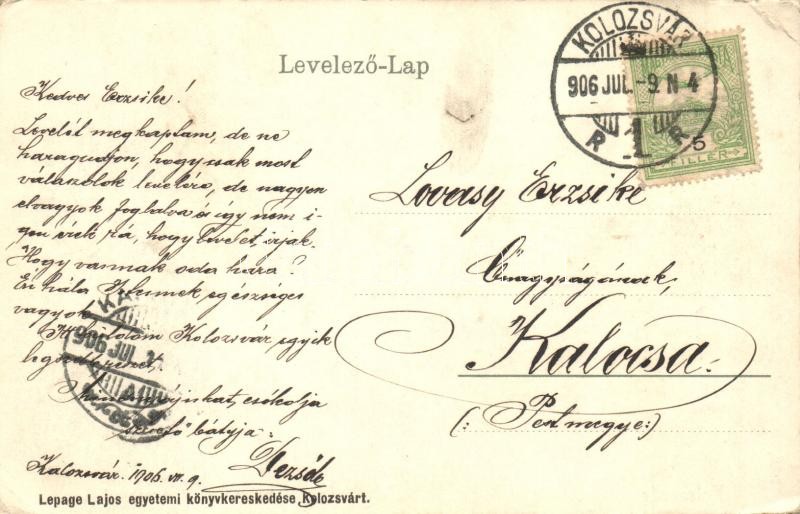 Levelező-Lap
KOLOZSVÁR
906 JUL.-9. N 4
R 1 R
5
FILLÉR
Kedves Erzsike!
Levelét megkaptam, de ne
haragudjon, hogy csak most
válaszolok levelére, de nagyon
elvagyok foglalva és így nem i-
gen érek rá, hogy levelet irjak.
Hogy vannak oda haza?
Én hála Istennek egészséges
vagyok.
Kolozsvár egyik
Mindnyájukat, csókolja
szerető bátyja:
Dezső
Kolozsvár. 1906. VII. 9.
906 JUL.
Lovasy Erzsike
Őnagyságának,
Kalocsa.
(: Pestmegye:)
Lepage Lajos egyetemi könyvkereskedése, Kolozsvárt.